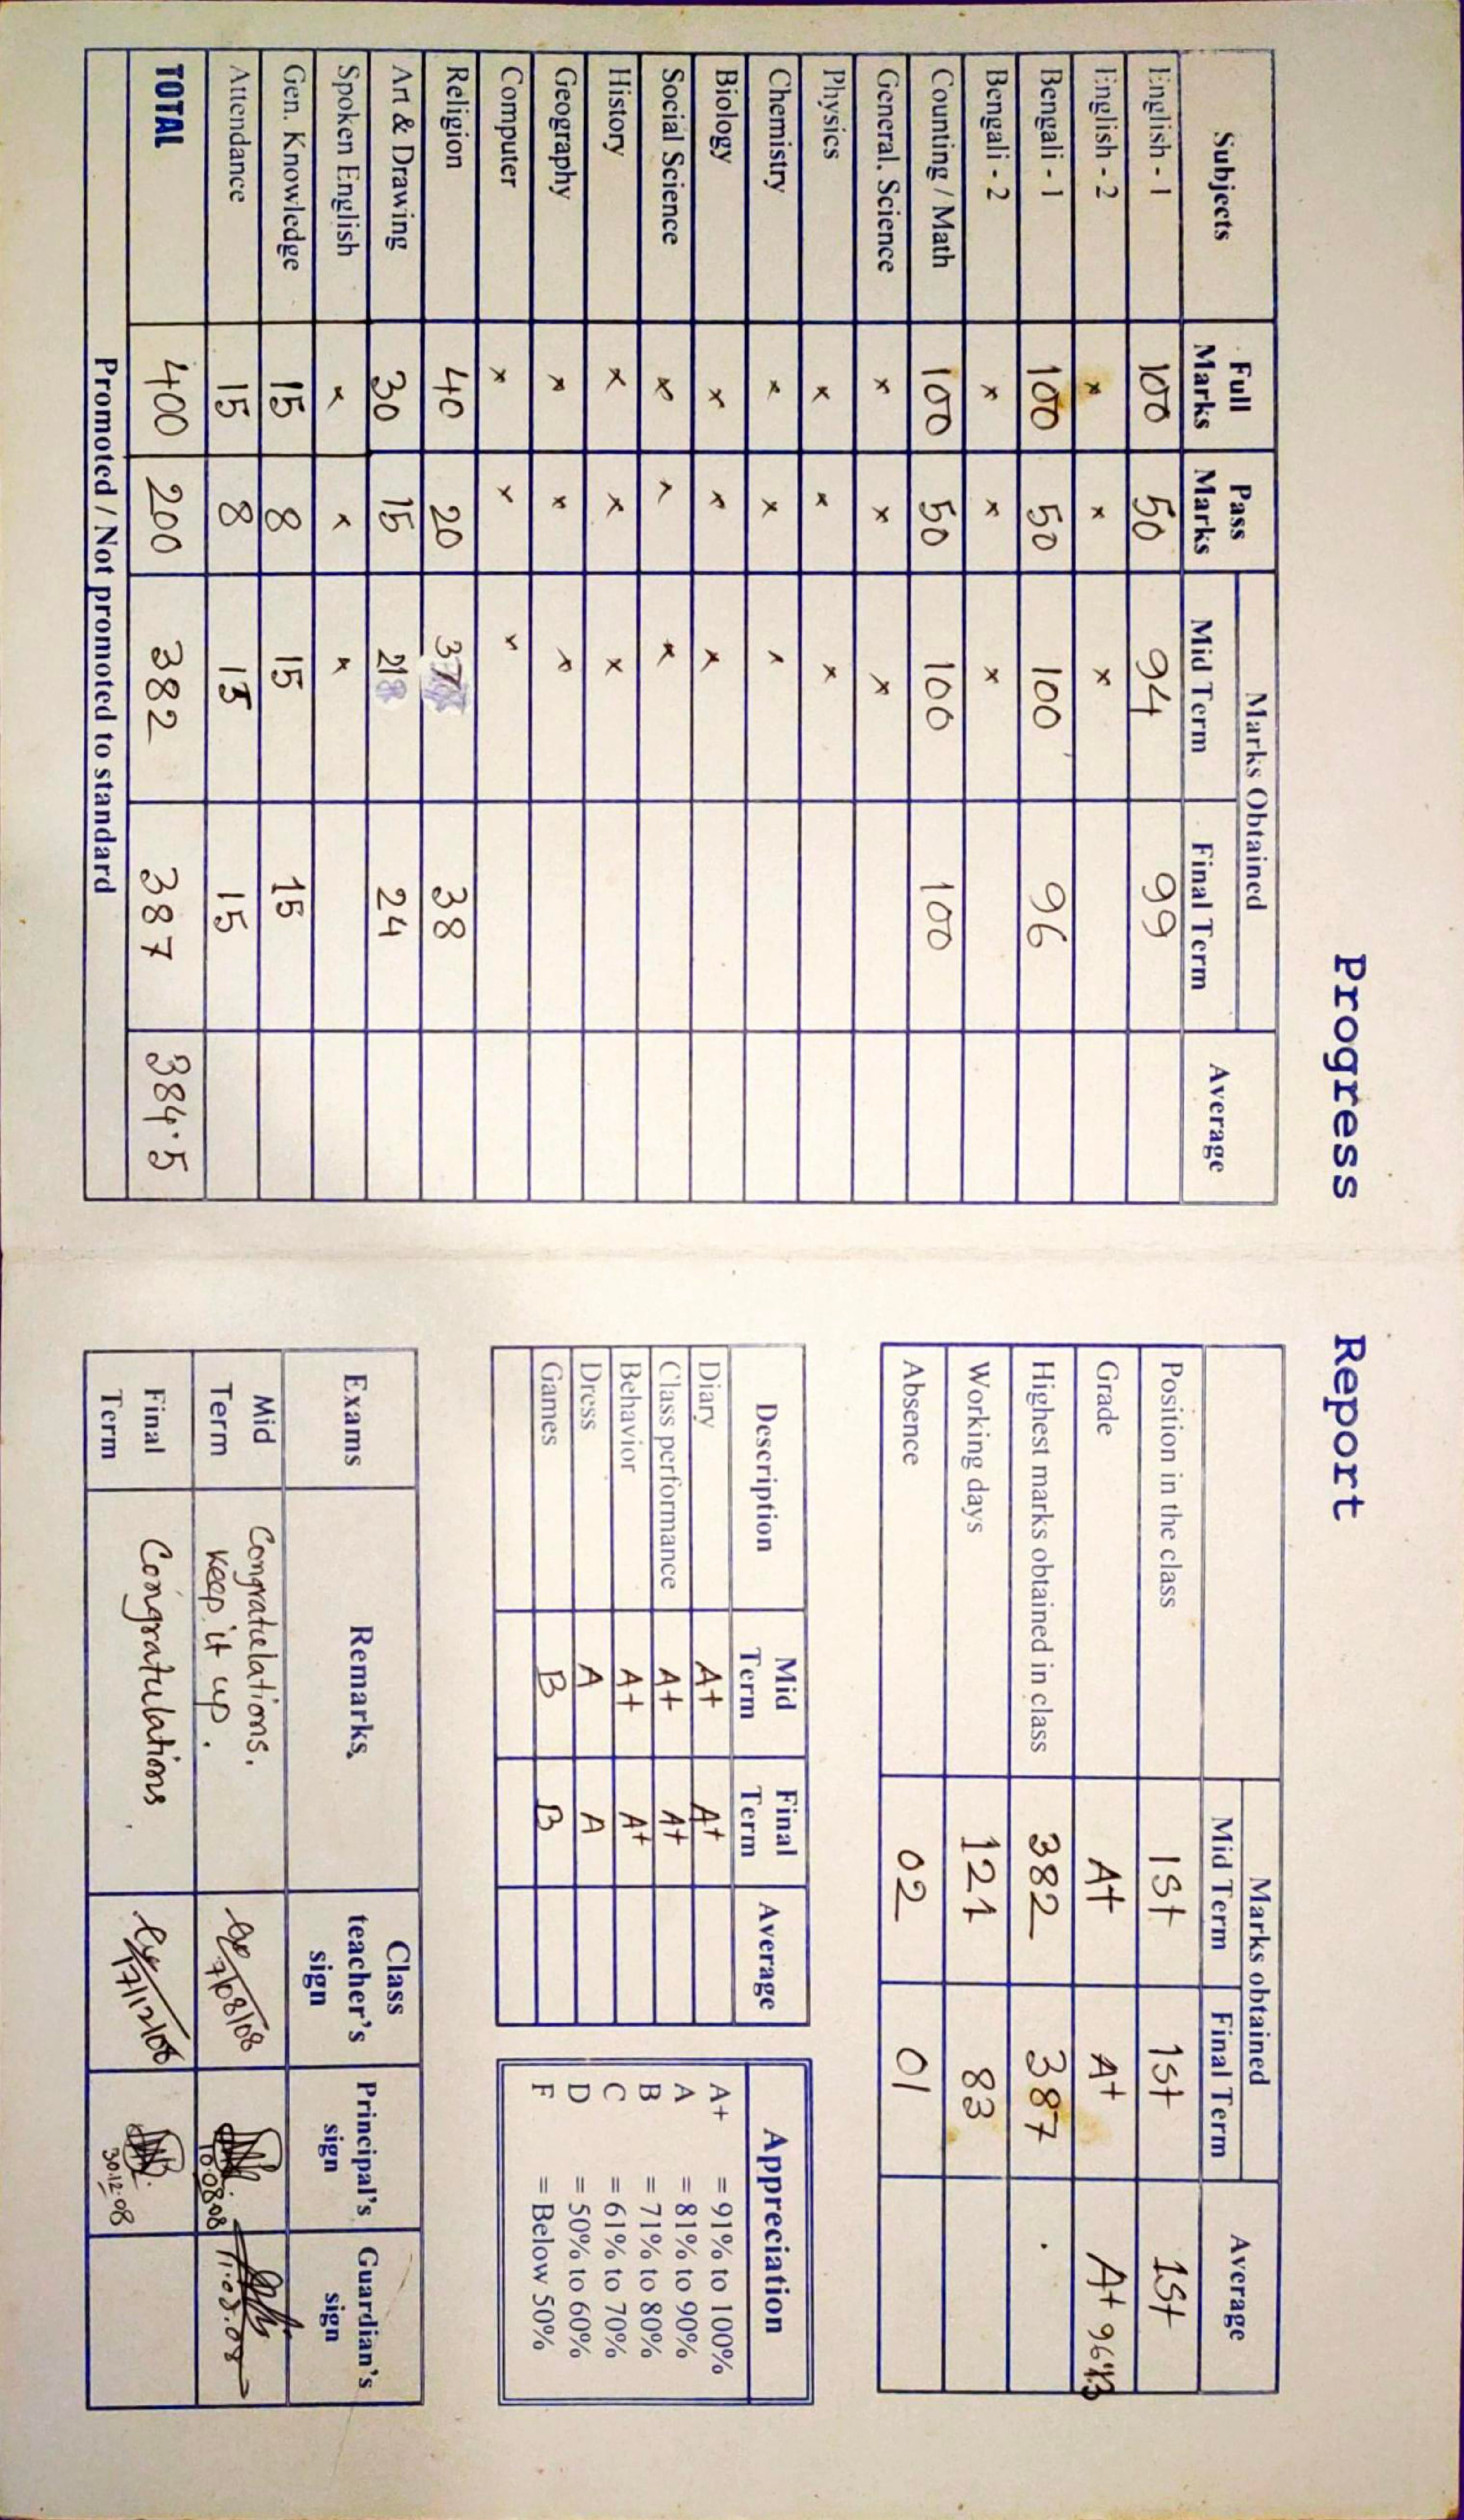 Progress Report
Subjects Full Marks Pass Marks Marks Obtained Average
Mid Term Final Term
English - 1 100 50 94 99
English - 2 × × ×
Bengali - 1 100 50 100 96
Bengali - 2 × × ×
Counting / Math 100 50 100 100
General. Science × × ×
Physics × × ×
Chemistry × × ×
Biology × × ×
Social Science × × ×
History × × ×
Geography × × ×
Computer × × ×
Religion 40 20 37 38
Art & Drawing 30 15 21 24
Spoken English × × ×
Gen. Knowledge 15 8 15 15
Attendance 15 8 15 15
TOTAL 400 200 382 387 384.5
Promoted / Not promoted to standard
Marks obtained Average
Mid Term Final Term
Position in the class 1st 1st 1st
Grade A+ A+ A+
Highest marks obtained in class 382 387
Working days 121 83
Absence 02 01
Description Mid Term Final Term Average
Diary A+ A+
Class performance A+ A+
Behavior A+ A+
Dress A A
Games B B
Appreciation
A+ = 91% to 100%
A = 81% to 90%
B = 71% to 80%
C = 61% to 70%
D = 50% to 60%
F = Below 50%
Exams Remarks Class teacher's sign Principal's sign Guardian's sign
Mid Term Congratulations. 7/08/08 10.08.08 11.08.08
keep it up.
Final Term Congratulations 17/12/08 30.12.08